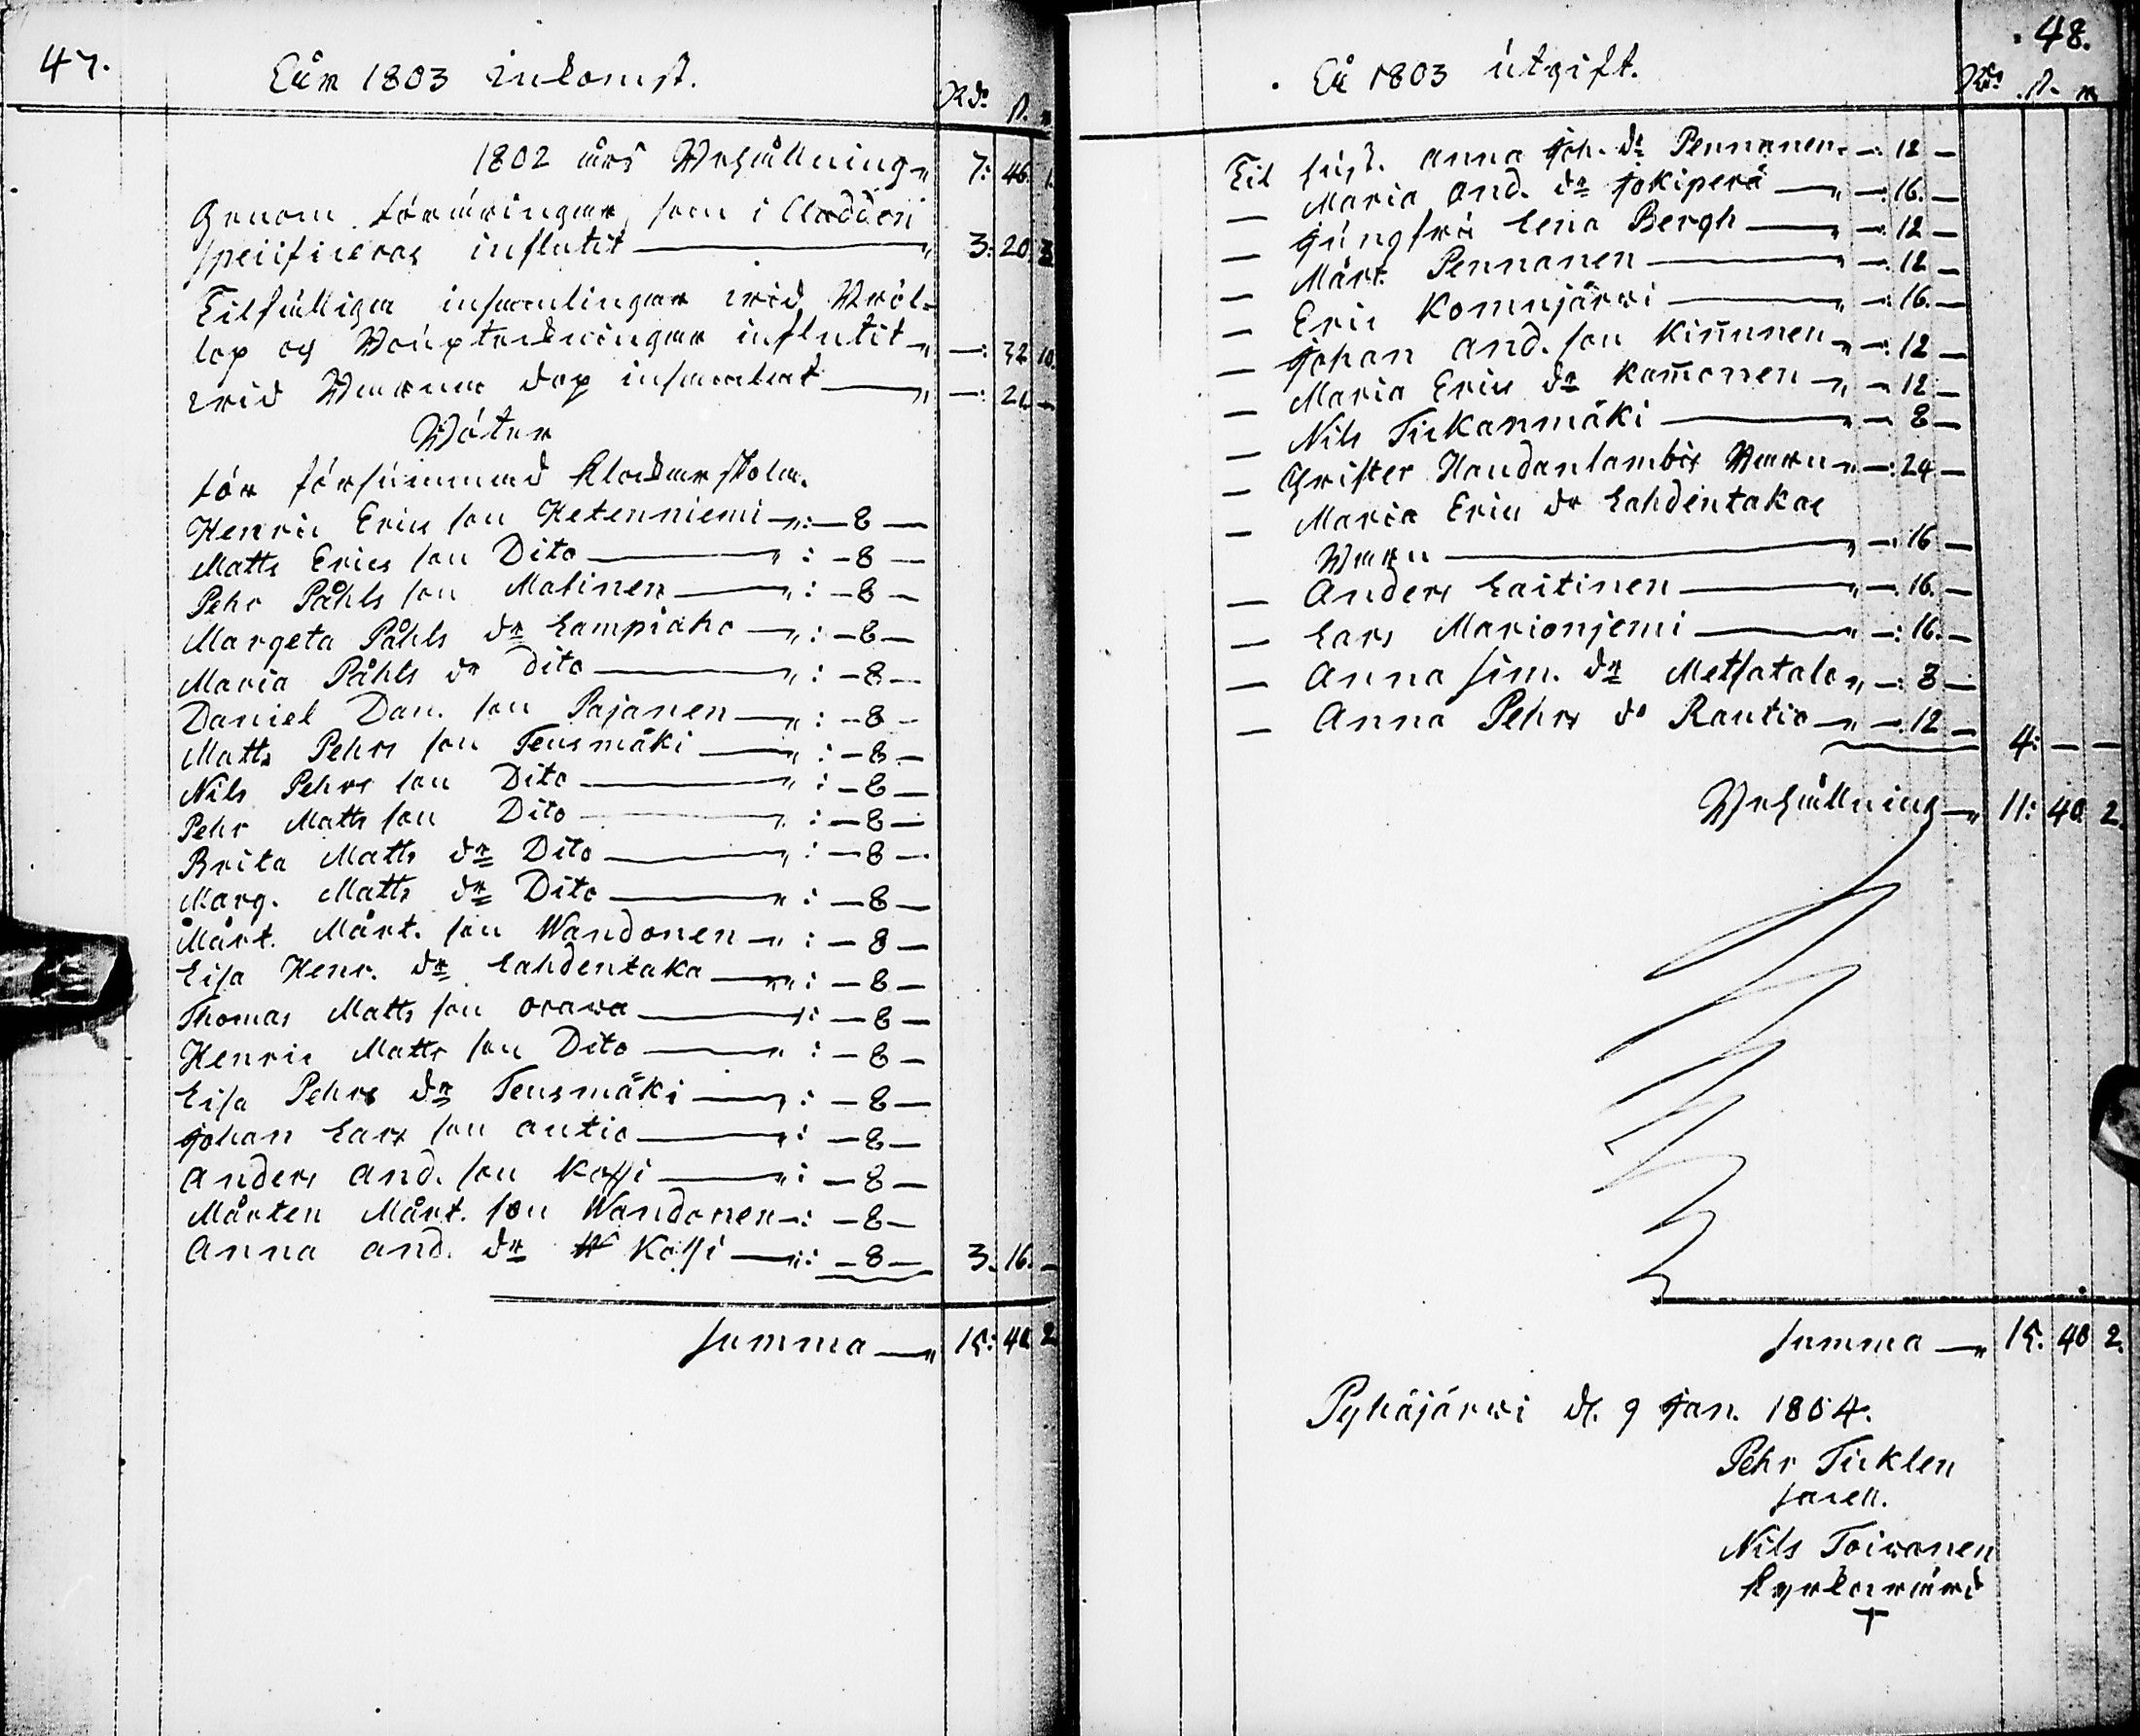 47.
Åhr 1803 inkomst.
Rd: s. r.
1802 års Behållning 7: 46. 1.
Genom föräringar, som i Cladden
specificeras influtit 3: 20 3
Tilfälliga insamlingar wid Bröl-
lop och influtit —: 32 10.
wid Barna dop insamlat —: 21 —
Böter
för försummad Klockarskola.
Henric Erics son Hetenniemi : — 8 —
Matts Erics son Dito : — 8 —
Pehr Påhls son Malinen : — 8 —
Margeta Påhls dr Lampiaho : — 8 —
Maria Påhls dr Dito : — 8 —
Daniel Dan. son Pajanen : — 8 —
Matts Pehrs son Teusmäki : — 8 —
Nils Pehrs son Dito : — 8 —
Pehr Matts son Dito : — 8 —
Brita Matts dr Dito : — 8 —
Marg. Matts dr Dito : — 8 —
Mårt. Mårt. son Wandonen : — 8 —
Lisa Henr. dr Lahdentaka : — 8 —
Thomas Matts son Orawa : — 8 —
Henric Matts son Dito : — 8 —
Lisa Pehrs dr Teusmäki : — 8 —
Johan Lars son Autio : — 8 —
Anders And. son Kossi : — 8 —
Mårten Mårt. son Wandonen : — 8 —
Anna And. dr Kossi : — 8 — 3. 16. —
Summa 15: 40 2
48.
Åhr 1803 utgift.
Rd: s. r.
Til hust. Anna Joh. dr Pennanen — 12 —
— Maria And. dr Jokiperä — 16. —
— Jungfru Lena Bergh — 12 —
— Mårt. Pennanen — 12 —
— Eric Komujärwi — 16. —
— Johan And. son Kiñunen — 12 —
— Maria Erics dr Kam̃onen — 12 —
— Nils Tickanmäki — 8 —
— Christer Haudanlambis Barn — 24 —
— Maria Erics dr Lahdentakas
Barn — 16 —
— Anders Laitinen — 16. —
— Lars Marionjemi — 16. —
— Anna Sim. dr Metsatalo — 8 —
— Anna Pehrs dr Rautio — 12 —
4: — —
Behållning 11: 40. 2.
Summa 15. 40 2.
Pyhäjärwi d. 9 Jan. 1804.
Pehr Ticklen
Sacell.
Nils Toiwonen
Kyrkowärd